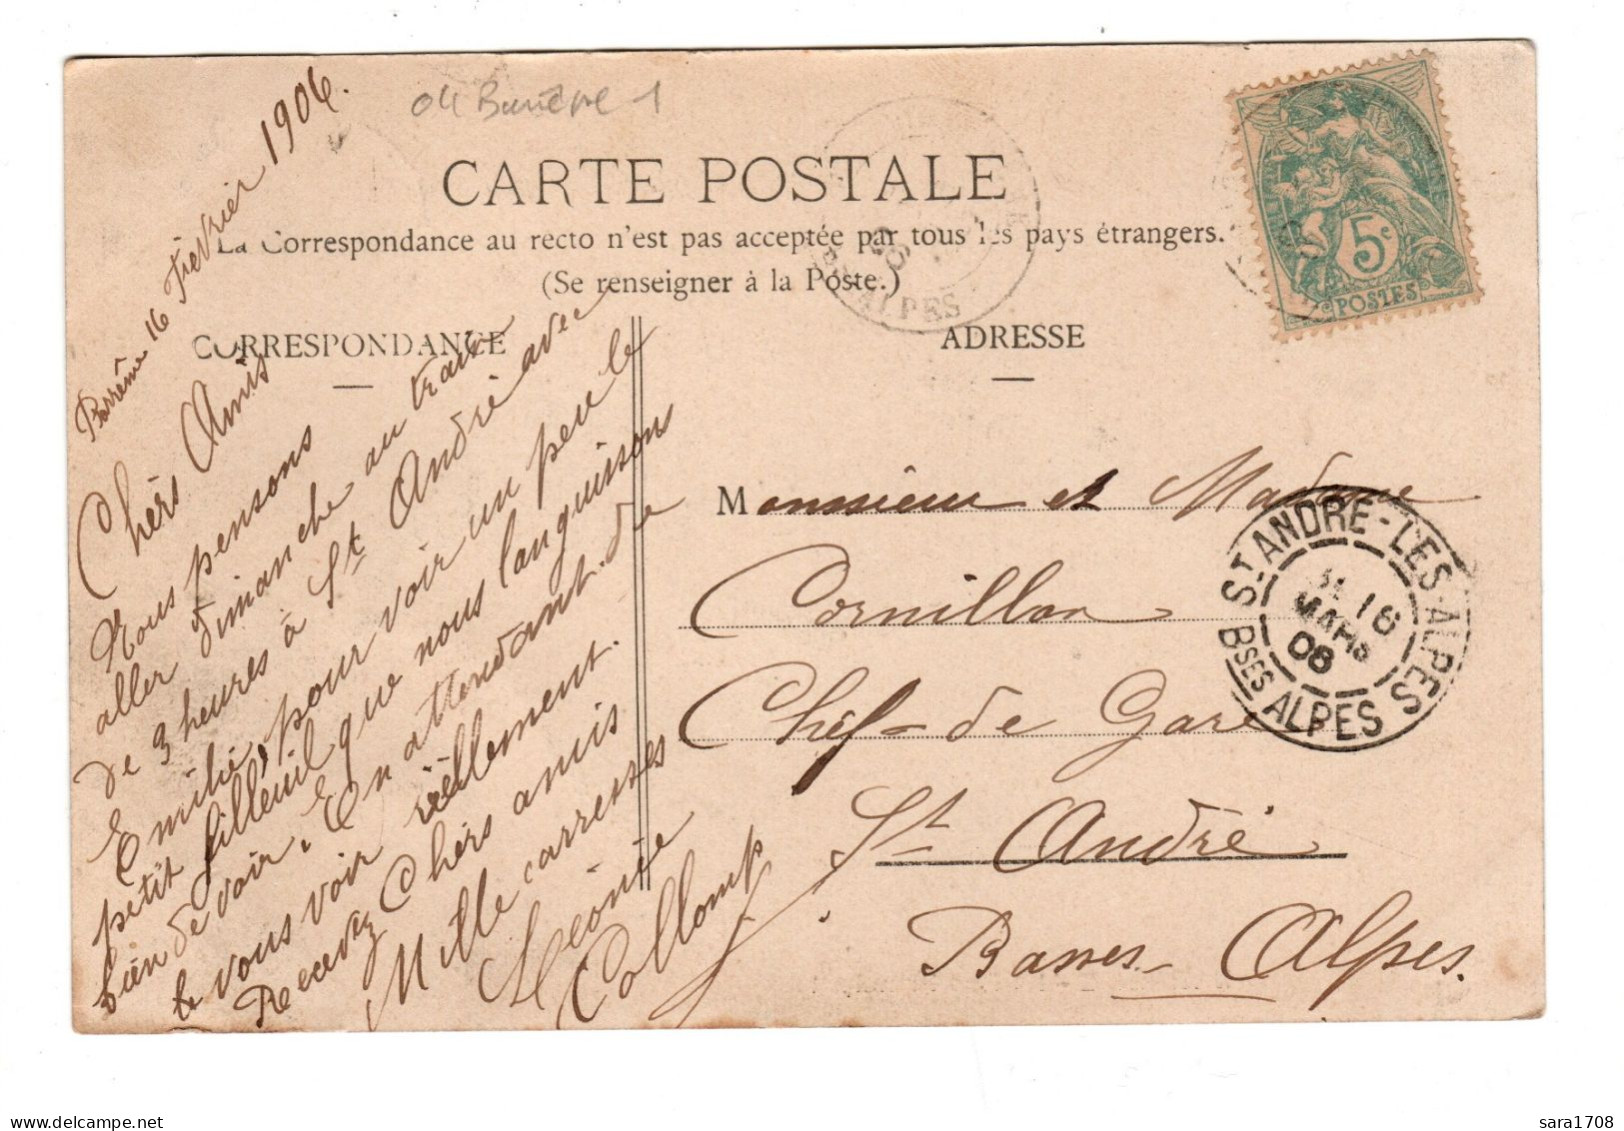 CARTE POSTALE
La Correspondance au recto n'est pas acceptée par tous les pays étrangers.
(Se renseigner à la Poste.)
CORRESPONDANCE
ADRESSE
Barrême 16 Fievrier 1906.
Chèrs Amis
Nous pensons
aller dimanche au train
de 3 heures à St André avec
Emilie, pour voir un peu le
petit filleuil que nous languissons
bien de voir. En attendant de
vous voir réèllement.
Recevez Chèrs amis
Mille carresses
Léonie
Collomp
Monsieur et Madame
Cornillon
Chef-de Gare
St André
Basses-Alpes.
5c
POSTES
ST ANDRÉ-LES-ALPES
16
MARS
06
BSES ALPES
ALPES
delcampe.net
sara1708